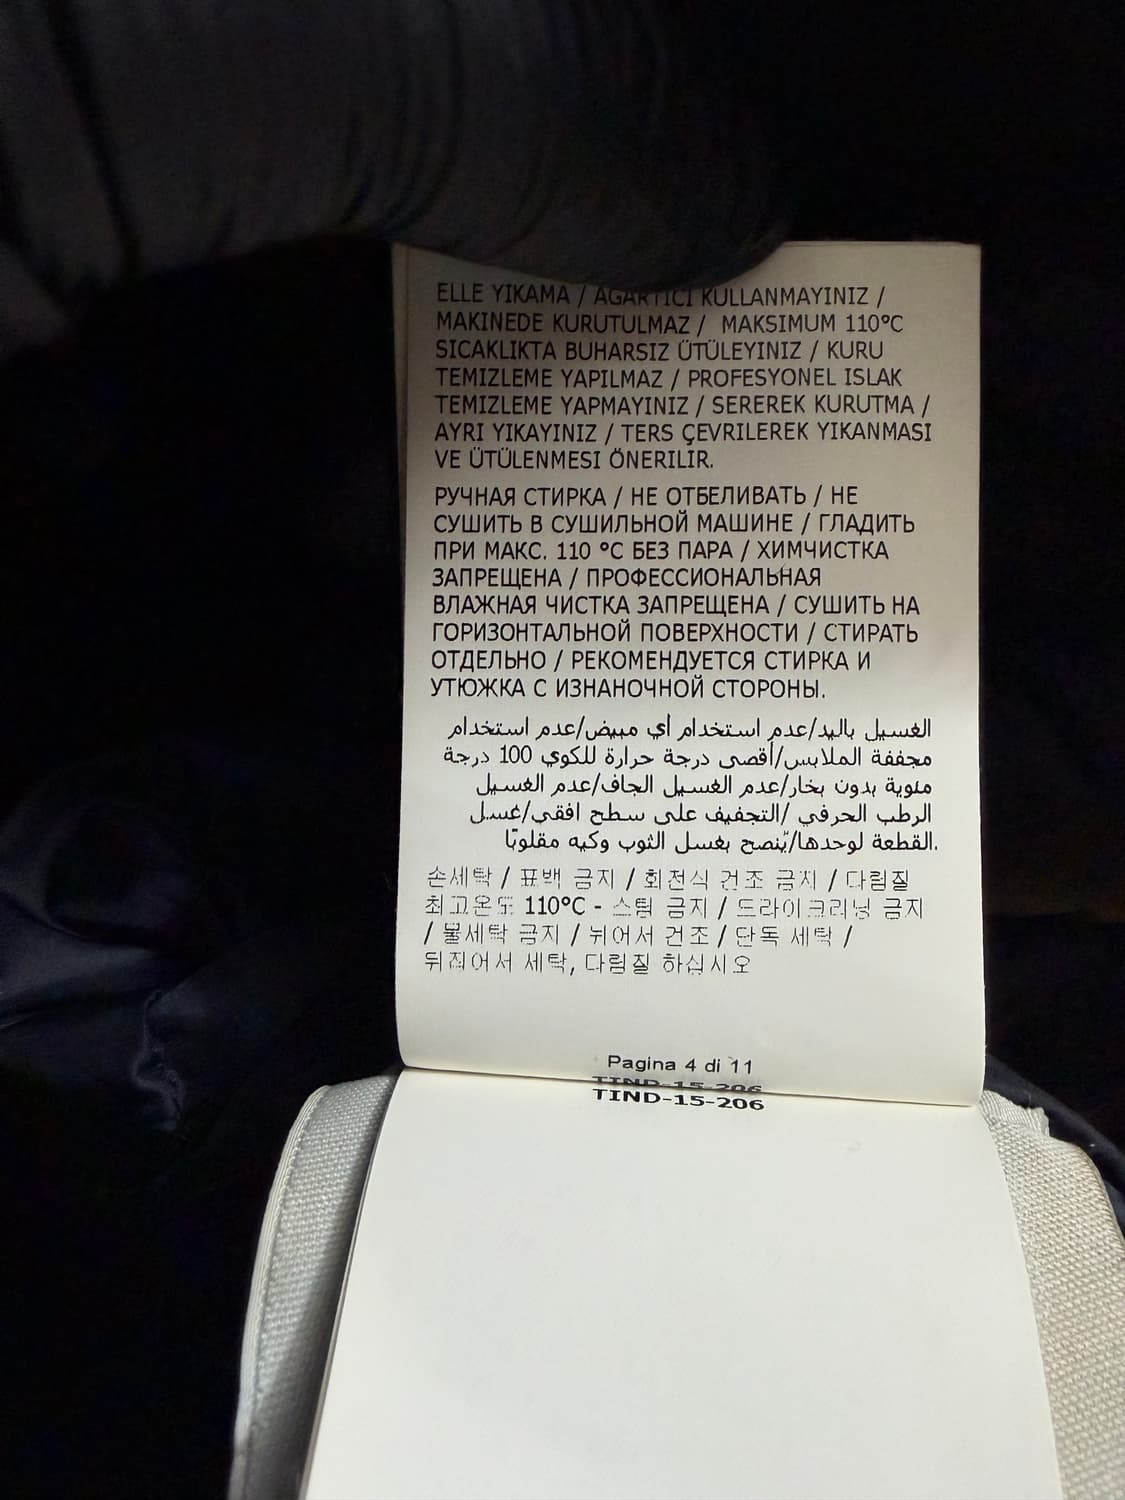 ELLE YIKAMA / AGARTICI KULLANMAYINIZ /
MAKINEDE KURUTULMAZ / MAKSIMUM 110°C
SICAKLIKTA BUHARSIZ ÜTÜLEYINIZ / KURU
TEMIZLEME YAPILMAZ / PROFESYONEL ISLAK
TEMIZLEME YAPMAYINIZ / SEREREK KURUTMA /
AYRI YIKAYINIZ / TERS ÇEVRILEREK YIKANMASI
VE ÜTÜLENMESI ÖNERILIR.
РУЧНАЯ СТИРКА / НЕ ОТБЕЛИВАТЬ / НЕ
СУШИТЬ В СУШИЛЬНОЙ МАШИНЕ / ГЛАДИТЬ
ПРИ МАКС. 110 °C БЕЗ ПАРА / ХИМЧИСТКА
ЗАПРЕЩЕНА / ПРОФЕССИОНАЛЬНАЯ
ВЛАЖНАЯ ЧИСТКА ЗАПРЕЩЕНА / СУШИТЬ НА
ГОРИЗОНТАЛЬНОЙ ПОВЕРХНОСТИ / СТИРАТЬ
ОТДЕЛЬНО / РЕКОМЕНДУЕТСЯ СТИРКА И
УТЮЖКА С ИЗНАНОЧНОЙ СТОРОНЫ.
الغسيل باليد/عدم استخدام أي مبيض/عدم استخدام
مجففة الملابس/أقصى درجة حرارة للكوي 100 درجة
مئوية بدون بخار/عدم الغسيل الجاف/عدم الغسيل
الرطب الحرفي /التجفيف على سطح افقي/غسل
القطعة لوحدها/يُنصح بغسل الثوب وكيه مقلوبًا.
손세탁 / 표백 금지 / 회전식 건조 금지 / 다림질
최고온도 110°C - 스팀 금지 / 드라이크리닝 금지
/ 물세탁 금지 / 뉘어서 건조 / 단독 세탁 /
뒤집어서 세탁, 다림질 하십시오
Pagina 4 di 11
TIND-15-206
TIND-15-206